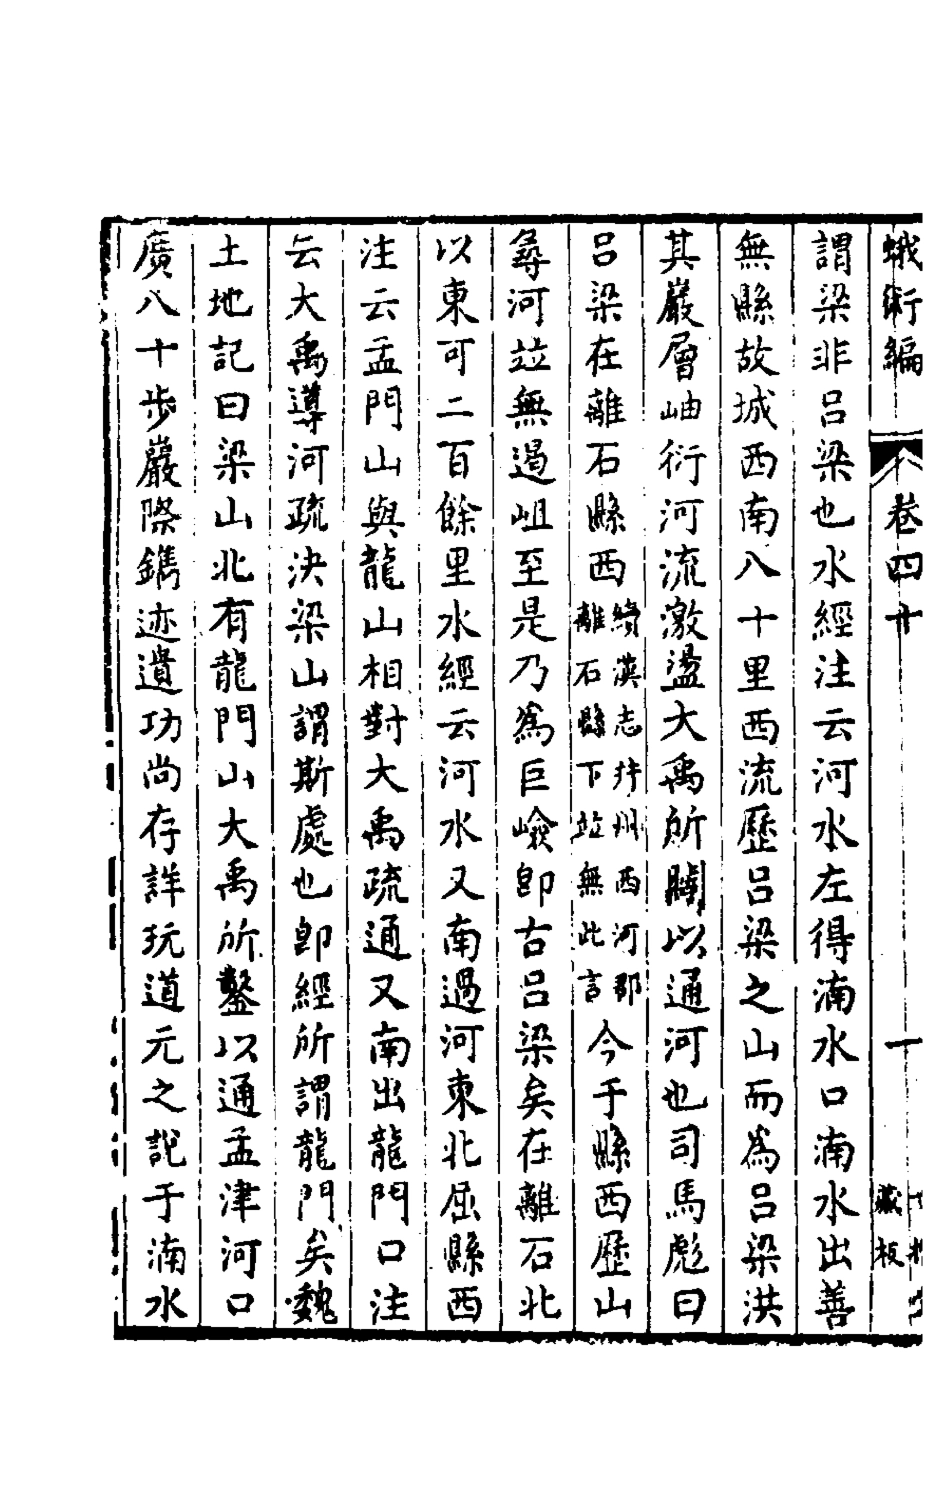 蛾術編
卷四十
一
藏板
謂梁非呂梁也水經注云河水左得湳水口湳水出善
無縣故城西南八十里西流歷呂梁之山而為呂梁洪
其巖層岫衍河流激盪大禹所闢以通河也司馬彪曰
呂梁在離石縣西續漢志幷州西河郡離石縣下竝無此言今于縣西歷山
尋河竝無過岨至是乃為巨嶮卽古呂梁矣在離石北
以東可二百餘里水經云河水又南過河東北屈縣西
注云孟門山與龍山相對大禹疏通又南出龍門口注
云大禹導河疏決梁山謂斯處也卽經所謂龍門矣魏
土地記曰梁山北有龍門山大禹所鑿以通孟津河口
廣八十步巖際鐫迹遺功尚存詳玩道元之說于湳水